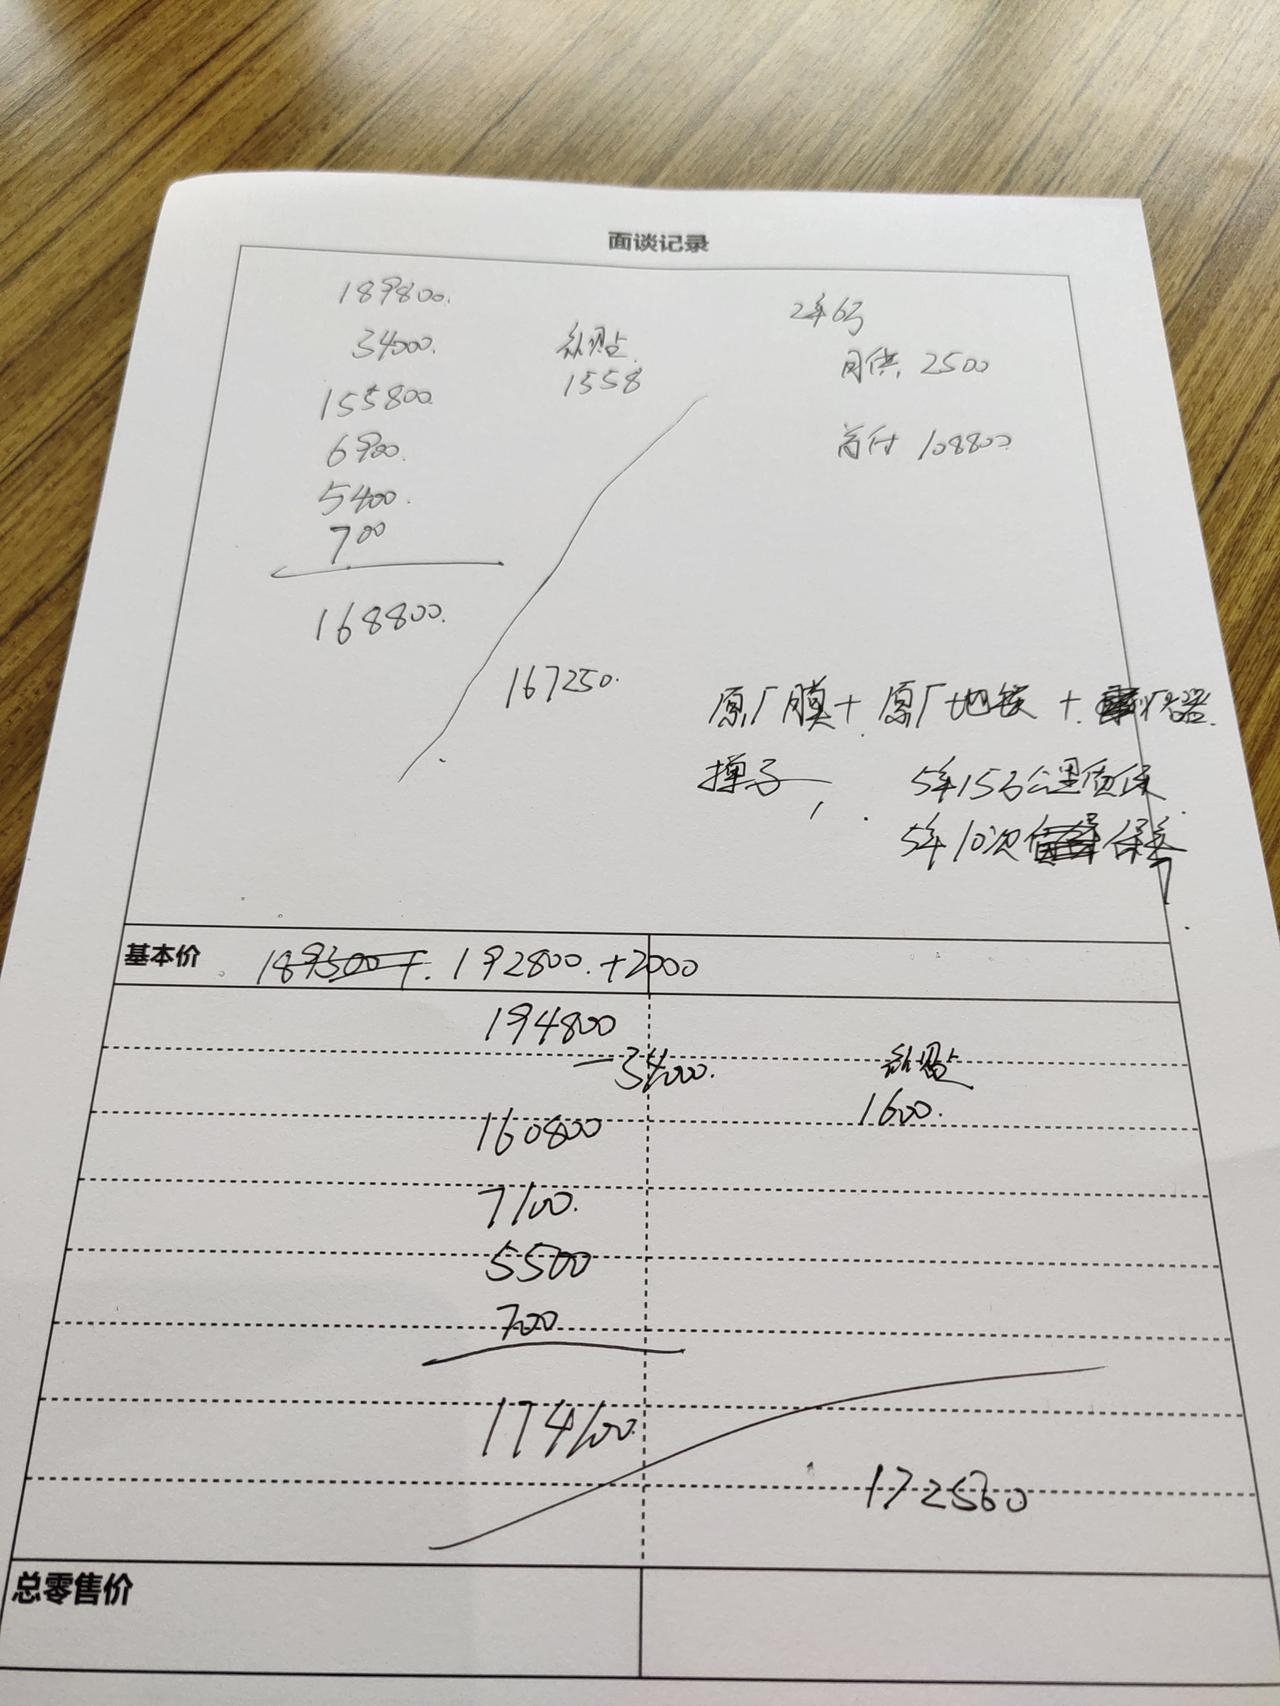 面谈记录
189800.
34000.
补贴
1558
2年6万
月供 2500
155800
6900.
首付 108800
5400.
700
168800.
167250.
原厂膜+原厂地毯+
掸子, 5年15万公里质保
5年10次 保养
基本价 189300+. 192800.+2000
194800
-34000.
补贴
1600.
160800
7100.
5500
700
174100
172500
总零售价